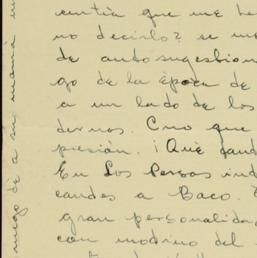 entia que me he
no decirlo? se me
de autosugestion
go de la época de
a un lado de los
dernos. Creo que
presión. ¡Qué
En Los Persas
a Baco.
gran personalida
con del
migo de a su mamá